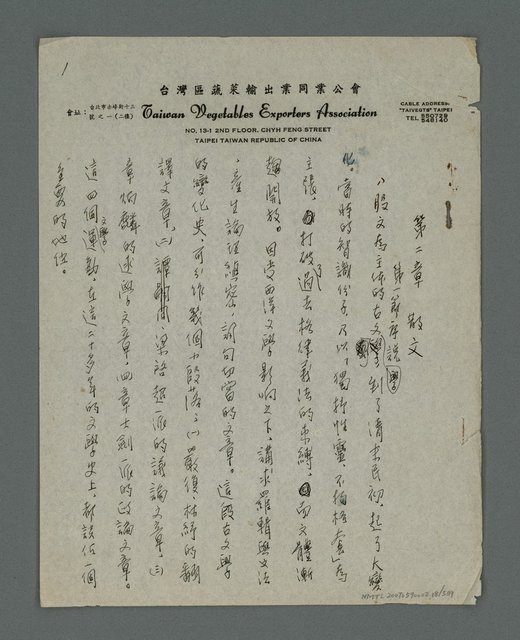 1
台灣區蔬菜輸出業同業公會
會址：台北市赤峰街十三號之一(二樓)
Taiwan Vegetables Exporters Association
CABLE ADDRESS:
"TAIVEGTS" TAIPEI
TEL 550729
548140
NO. 13-1 2ND FLOOR, CHYH FENG STREET
TAIPEI TAIWAN REPUBLIC OF CHINA
第二章 散文
第一節 序說
八股文為主体的古文學到了清末民初，起了大變
化。當時的智識份子乃以「獨抒性靈，不拘格套」為
主張，打破過去格律義法的束縛，而文體漸
趨開放。因受西洋文學影响之下，講求羅輯與文法
，產生論理縝密，詞句切當的文章。這段古文學
的變化史，可分作幾個小段落：(一)嚴復林紓的翻
譯文章，(二)譚嗣同、梁啟超一派的議論文章，(三)
章炳麟的述學文章，四章士釗一派的政論文章。
這四個文學運動，在這二十多年的文學史上，都該佔一個
重要的地位。
NMTL 20070590002 18/509